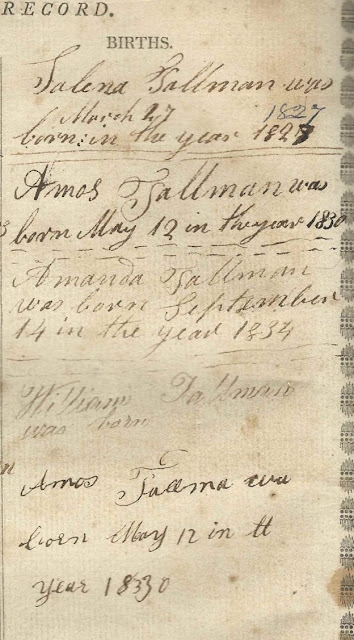 RECORD.
BIRTHS.
Salena Tallman was
March 27 1827
born in the year 1827
Amos Tallman was
born May 12 in the year 1830
Amanda Tallman
was born September
14 in the year 1834
William Tallman
was born
Amos Tallma wa
born May 12 in tt
year 18330